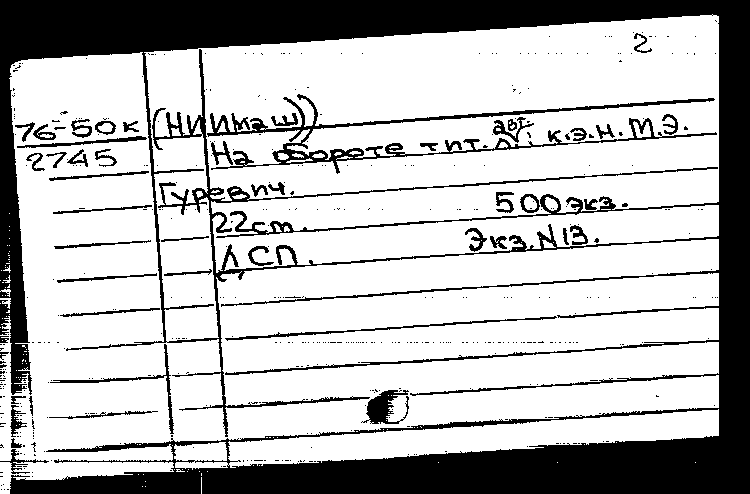 2
76-50к (НИИмаш))
2745 На обороте тит. л. авт.: к.э.н. М.Э.
Гуревич.
22 cm. 500 экз.
ДСП. Экз. N 13.